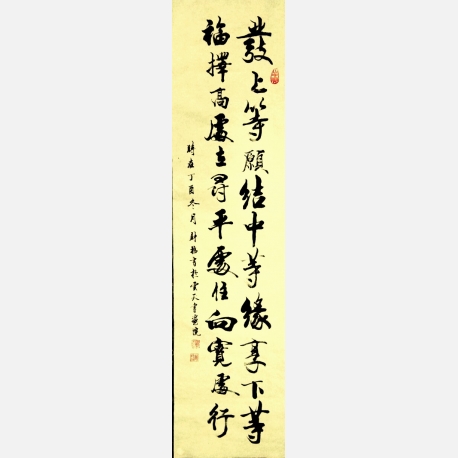 發上等願結中等緣享下等
福擇高處立尋平處住向寬處行
時在丁酉冬月
書於雲天書畫院